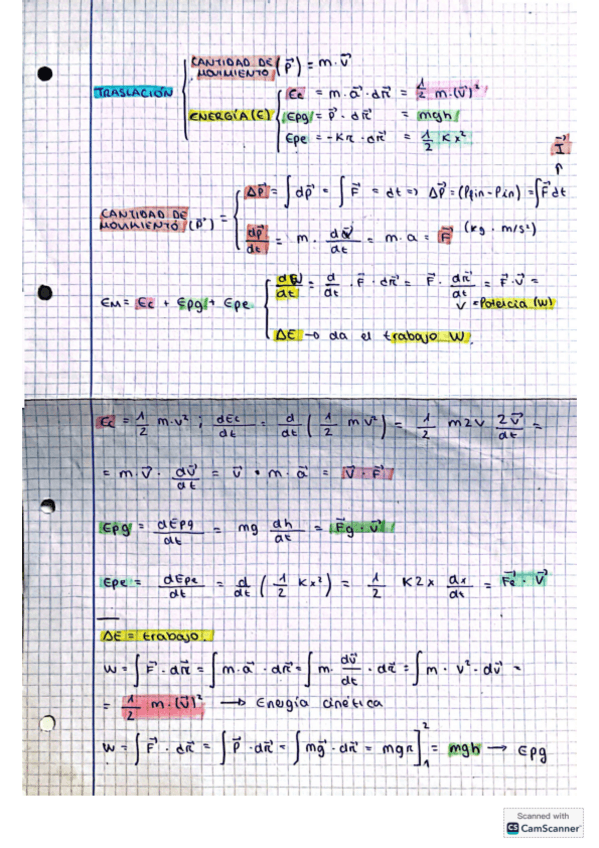 CANTIDAD DE MOVIMIENTO (p⃗) = m·v⃗
TRASLACIÓN
ENERGÍA (E)
Ec = m·a⃗·dr⃗ = 1/2 m·(v⃗)²
Epg = p⃗·dr⃗ = mgh
Epe = -Kr·dr⃗ = 1/2 Kx²
I⃗
Δp⃗ = ∫dp⃗ = ∫F⃗ = dt ⇒ Δp⃗ = (Pfin-Pin) = ∫F⃗dt
CANTIDAD DE MOVIMIENTO (p⃗) =
dp⃗/dt = m · dv⃗/dt = m·a = F⃗ (kg·m/s²)
EM = Ec + Epg + Epe
dW/dt = d/dt · F⃗ · dr⃗ = F⃗ · dr⃗/dt = F⃗·v⃗ =
v = Potencia (W)
ΔE → da el trabajo W.
Ec = 1/2 m·v² ; dEc/dt = d/dt (1/2 mv²) = 1/2 m2v 2v⃗/dt =
= m·v⃗ · dv⃗/dt = v⃗ · m·a⃗ = v⃗·F⃗
Epg = dEpg/dt = mg dh/dt = F⃗g·v⃗
Epe = dEpe/dt = d/dt (1/2 Kx²) = 1/2 K2x dx/dt = F⃗e·v⃗
ΔE = trabajo.
W = ∫F⃗·dr⃗ = ∫m·a⃗·dr⃗ = ∫m·dv⃗/dt·dr⃗ = ∫m·v²·dv⃗ =
= 1/2 m·(v⃗)² → Energía cinética
W = ∫F⃗·dr⃗ = ∫P⃗·dr⃗ = ∫mg⃗·dr⃗ = mgr]²₁ = mgh → Epg
Scanned with
CS CamScanner